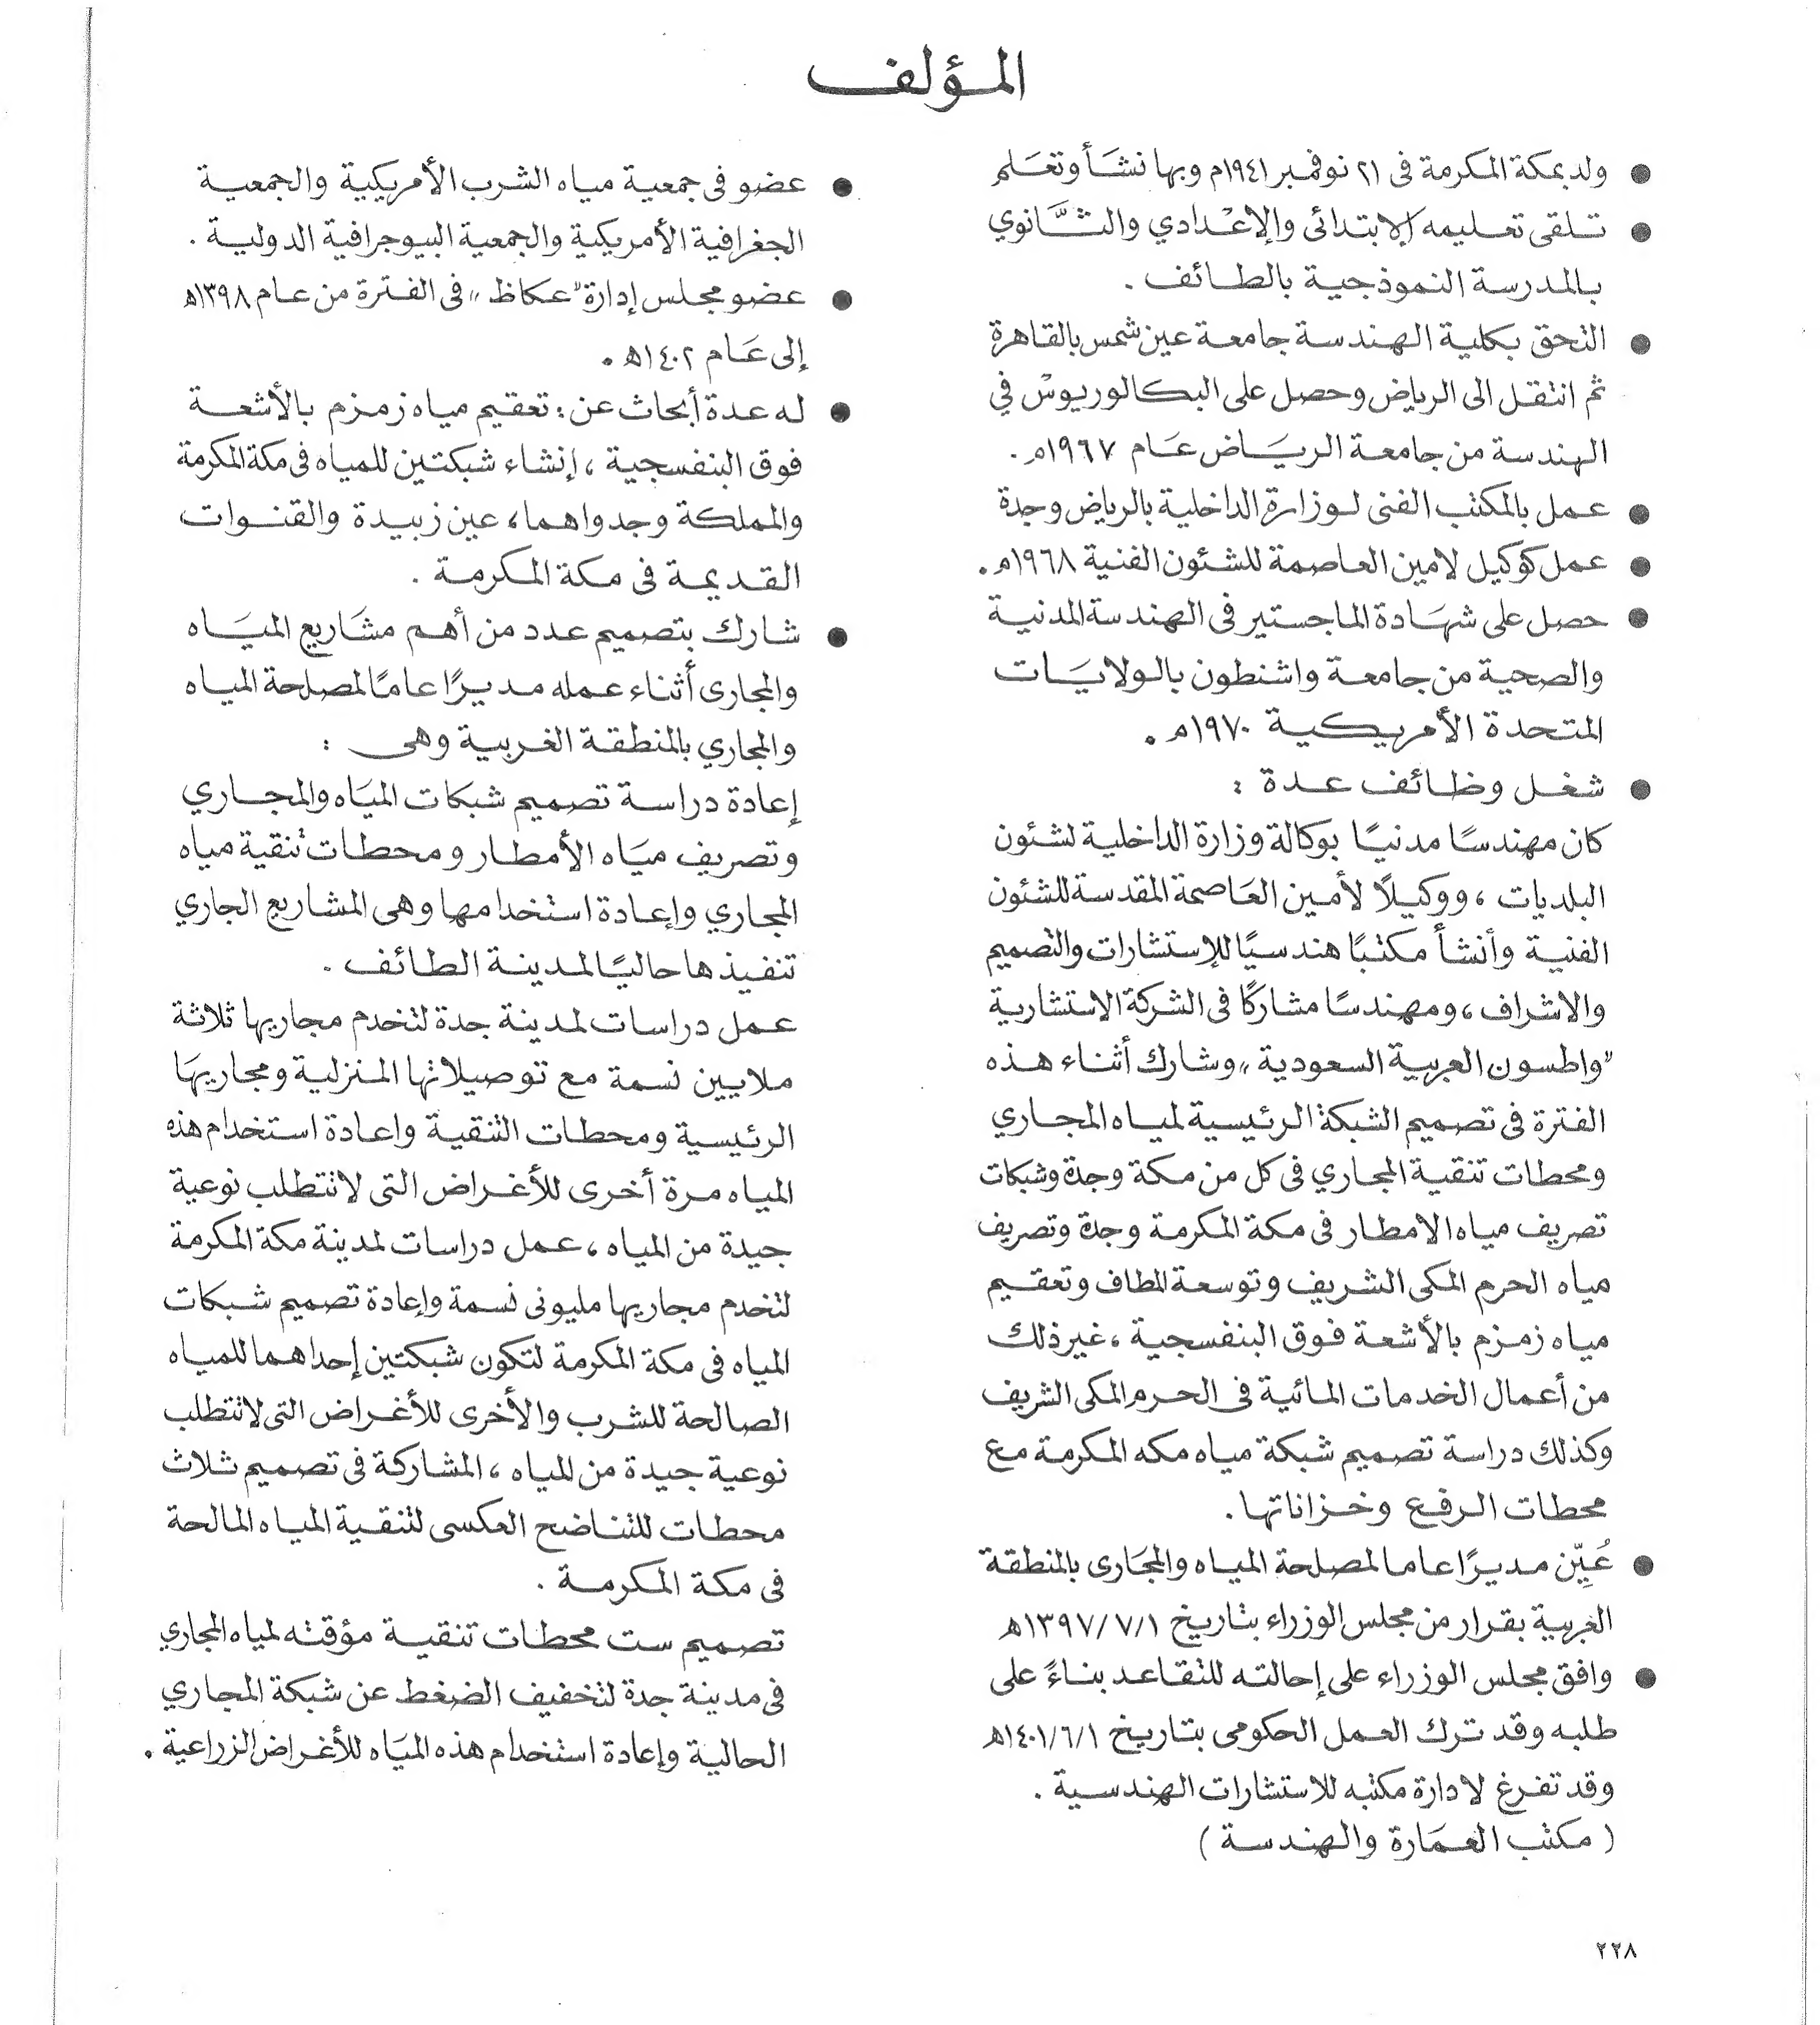 المؤلف
● ولد بمكة المكرمة فى ٢١ نوفمبر ١٩٤١م وبها نشَأ وتعَلم
● تلقى تعليمه الابتدائى والإعْدادي والثَّانوي
بالمدرسة النموذجية بالطائف .
● التحق بكلية الهندسة جامعة عين شمس بالقاهرة
ثم انتقل الى الرياض وحصل على البكالوريوسْ في
الهندسة من جامعة الريَاض عَام ١٩٦٧م .
● عمل بالمكتب الفنى لوزارة الداخلية بالرياض وجدة
● عمل كوكيل لامين العاصمة للشئون الفنية ١٩٦٨م .
● حصل على شهَادة الماجستير فى الهندسة المدنية
والصحية من جامعة واشنطون بالولايَات
المتحدة الأمريكية ١٩٧٠م .
● شغل وظائف عدة :
كان مهندسًا مدنيًا بوكالة وزارة الداخلية لشئون
البلديات ، ووكيلًا لأمين العَاصمة المقدسة للشئون
الفنية وأنشأ مكتبًا هندسيًا للإستشارات والتصميم
والاشراف ، ومهندسًا مشاركًا فى الشركة الاستشارية
"واطسون العربية السعودية" وشارك أثناء هذه
الفترة فى تصميم الشبكة الرئيسية لمياه المجاري
ومحطات تنقية المجاري فى كل من مكة وجدة وشبكات
تصريف مياه الامطار فى مكة المكرمة وجدة وتصريف
مياه الحرم المكى الشريف وتوسعة المطاف وتعقيم
مياه زمزم بالأشعة فوق البنفسجية ، غير ذلك
من أعمال الخدمات المائية فى الحرم المكى الشريف
وكذلك دراسة تصميم شبكة مياه مكه المكرمة مع
محطات الرفع وخزاناتها .
● عُيِّن مديرًا عاما لمصلحة المياه والمجَارى بالمنطقة
الغربية بقرار من مجلس الوزراء بتاريخ ١٣٩٧/٧/١ھ
● وافق مجلس الوزراء على إحالته للتقاعد بناءً على
طلبه وقد ترك العمل الحكومى بتاريخ ١٤٠١/٦/١ھ
وقد تفرغ لادارة مكتبه للاستشارات الهندسية .
( مكتب العمَارة والهندسة )
● عضو فى جمعية مياه الشرب الأمريكية والجمعية
الجغرافية الأمريكية والجمعية البيوجرافية الدولية .
● عضو مجلس إدارة "عكاظ" فى الفترة من عام ١٣٩٨ھ
إلى عَام ١٤٠٢ھ .
● له عدة أبحاث عن : تعقيم مياه زمزم بالأشعة
فوق البنفسجية ، إنشاء شبكتين للمياه فى مكة المكرمة
والمملكة وجدواهما ، عين زبيدة والقنوات
القديمة فى مكة المكرمة .
● شارك بتصميم عدد من أهم مشَاريع الميَاه
والمجارى أثناء عمله مديرًا عامًا لمصلحة المياه
والمجاري بالمنطقة الغربية وهى :
إعادة دراسة تصميم شبكات الميَاه والمجاري
وتصريف ميَاه الأمطار ومحطات تنقية مياه
المجاري وإعادة استخدامها وهى المشاريع الجاري
تنفيذها حاليًا لمدينة الطائف .
عمل دراسات لمدينة جدة لتخدم مجاريها ثلاثة
ملايين نسمة مع توصيلاتها المنزلية ومجاريهَا
الرئيسية ومحطات التنقية واعادة استخدام هذه
المياه مرة أخرى للأغراض التى لا تتطلب نوعية
جيدة من المياه ، عمل دراسات لمدينة مكة المكرمة
لتخدم مجاريها مليونى نسمة وإعادة تصميم شبكات
المياه فى مكة المكرمة لتكون شبكتين إحداهما للمياه
الصالحة للشرب والأخرى للأغراض التى لا تتطلب
نوعية جيدة من المياه ، المشاركة فى تصميم ثلاث
محطات للتناضح العكسى لتنقية المياه المالحة
فى مكة المكرمة .
تصميم ست محطات تنقية مؤقته لمياه المجاري
فى مدينة جدة لتخفيف الضغط عن شبكة المجاري
الحالية وإعادة استخدام هذه الميَاه للأغراض الزراعية .
٢٢٨